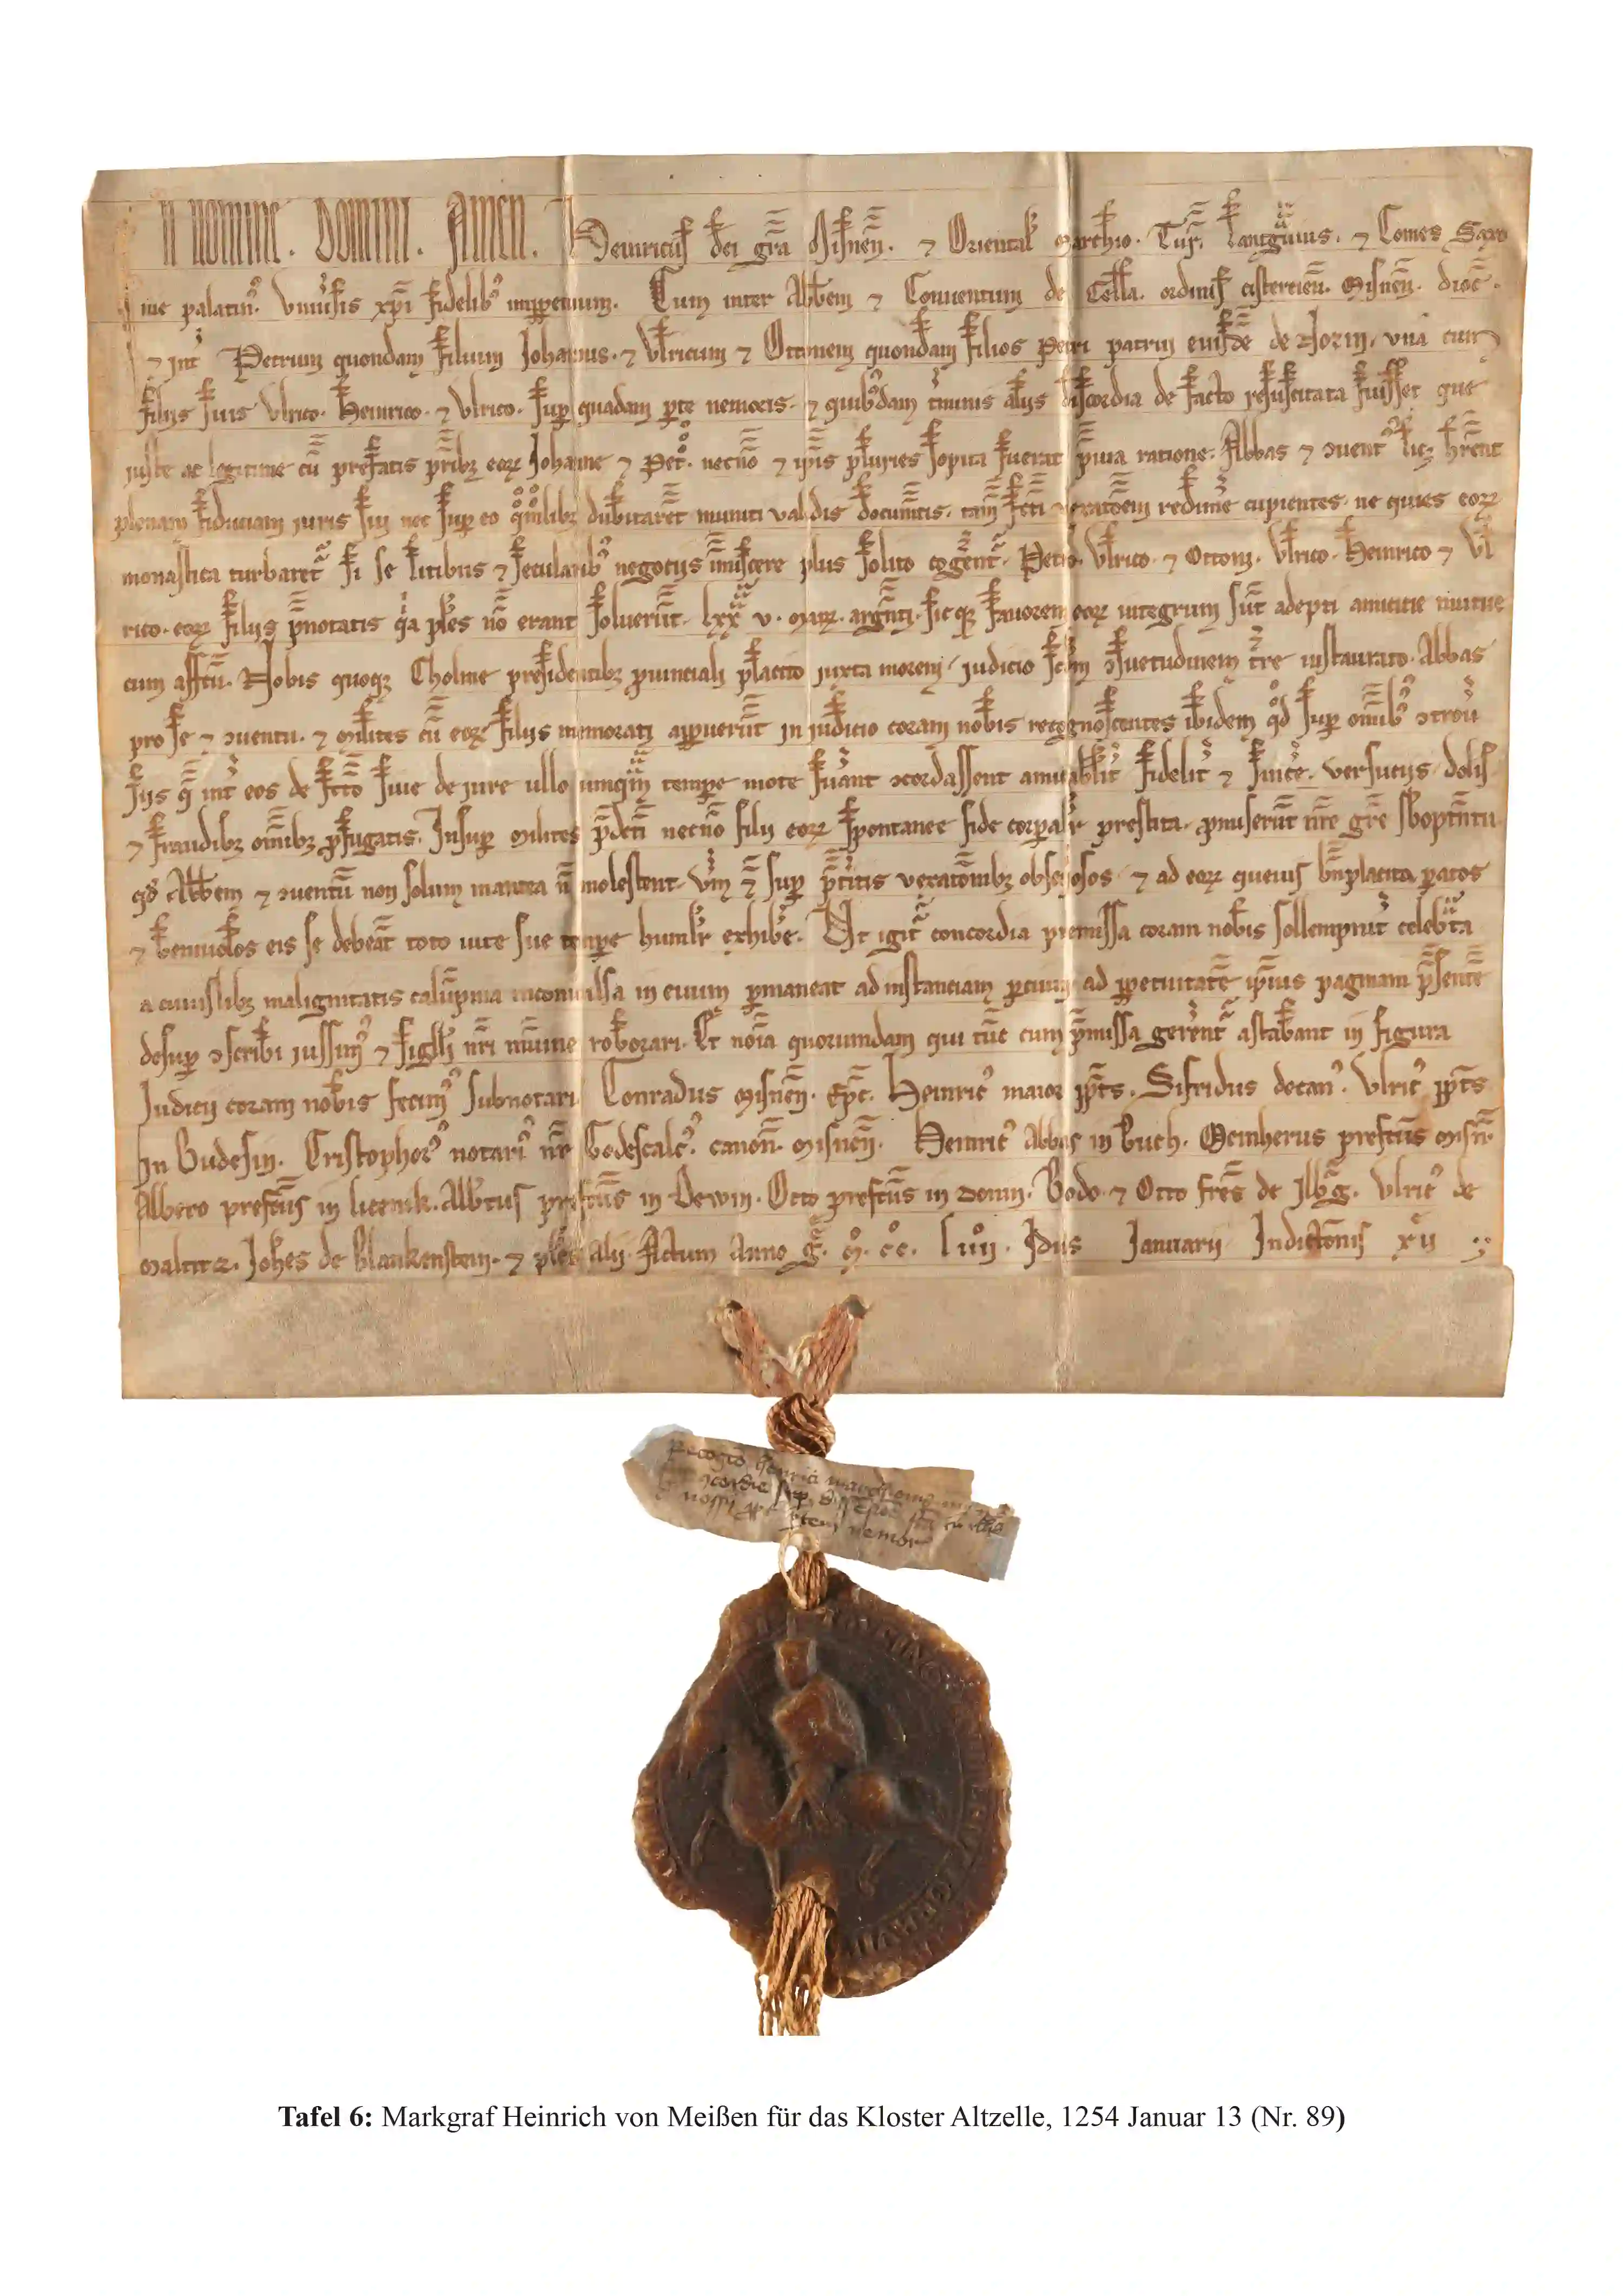 In nomine. Domini. Amen. Heinricus dei gra Misnen. ⁊ Oriental marchio. Tur. lantgͣuius. ⁊ Comes Saxo
nie palatin᷒. vniuͥsis xpi fidelib᷒ imppetuum. Cum inter Abbem ⁊ Conuentum de Cella. ordinis cistercien. Misnen. dioc.
⁊ int Petrum quondam filium Johannis. ⁊ Vlricum ⁊ Ottonem quondam filios Petri patrui eiusde de Nozin. vna cum
filijs suis Vlrico. Heinrico. ⁊ Vlrico. sup quadam parte nemoris. ⁊ quib᷒dam tminis alijs discordia de facto resuscitata fuisset que
iuste ac legitime cu prefatis pribꝫ eoꝝ Johanne ⁊ Pet. necno ⁊ ipis pluries sopita fuerat ꝓuia ratione. Abbas ⁊ ꝯuent᷒ licꝫ hrent
plenam fiduciam iuris sui nec sup eo qomlibꝫ dubitaret muniti validis documtis. tam fcti vexatoem redime cupientes. ne quies eoꝝ
monastica turbaret si se litibus ⁊ secularib᷒ negotijs imiscere plus solito cogent. Petro. Vlrico. ⁊ Ottoni. Vlrico. Heinrico ⁊ Vl
rico. eoꝝ filijs pnotatis qͥa ples no erant soluerut. lxx v. marc. argenti. sicqꝫ fauorem eoꝝ integrum sut adepti amicitie mutue
cum affcu. Nobis quoqꝫ Cholme presidentibꝫ ꝓuinciali placito iuxta morem. iudicio scdm ꝯsuetudinem tre instaurato. Abbas
pro se ⁊ ꝯuentu. ⁊ milites cu eoꝝ filijs memorati apparuerut in iudicio coram nobis recognoscentes ibidem qd sup omib᷒ ꝯtrou
sijs q int eos de fcto siue de iure ullo umqm tempe mote fuant ꝯcordassent amicabilit fidelit ⁊ sincere. versutijs dolis
⁊ fraudibꝫ omibꝫ ꝓfugatis. Insup milites pdcti necno filij eoꝝ spontanee fide corpalr prestita. ꝓmiserut nre gre sb optntu.
qd Abbem ⁊ ꝯuentu non solum inantea n molestent. vm ⁊ sup ptitis vexatoibꝫ obsequiosos. ⁊ ad eoꝝ queuis bnplacita paratos
⁊ beniuolos eis se debeat toto uite sue tempe humilr exhibe. Ut igit concordia premissa coram nobis sollempnit celebͣta
a cuiuslibꝫ malignitatis calupnia inconuulsa in euum pmaneat ad instanciam parcium ad ppetuitate ipius paginam psente
desup ꝯscribi iussim᷒ ⁊ sigilli nri munie roborari. Et noia quorumdam qui tuc cum pmissa gerent astabant in figura
Judicij coram nobis fecim᷒ subnotari Conradus Misnen. Epc. Heinric᷒ maior ppts. Sifridus decan᷒. Vlric᷒ ppts
in Budesin. Cristophor᷒ notari᷒ nr Godescalc᷒. canon. misnen. Heinric᷒ Abbas in Buch. Meinherus prefctus misn.
Albero prefctus in liznik. Albtus prefctus in Dewin. Otto prefctus in Donin. Bodo ⁊ Otto fres de Ilbͣg. Vlric᷒ de
Maltitz. Johes de Blankenstein. ⁊ ples alij. Actum Anno g. M. cc. liiij. Idus Januarij Indictonis xij
Recogto henrici
ꝯcordie sup
nossin
ptem nemor
Tafel 6: Markgraf Heinrich von Meißen für das Kloster Altzelle, 1254 Januar 13 (Nr. 89)